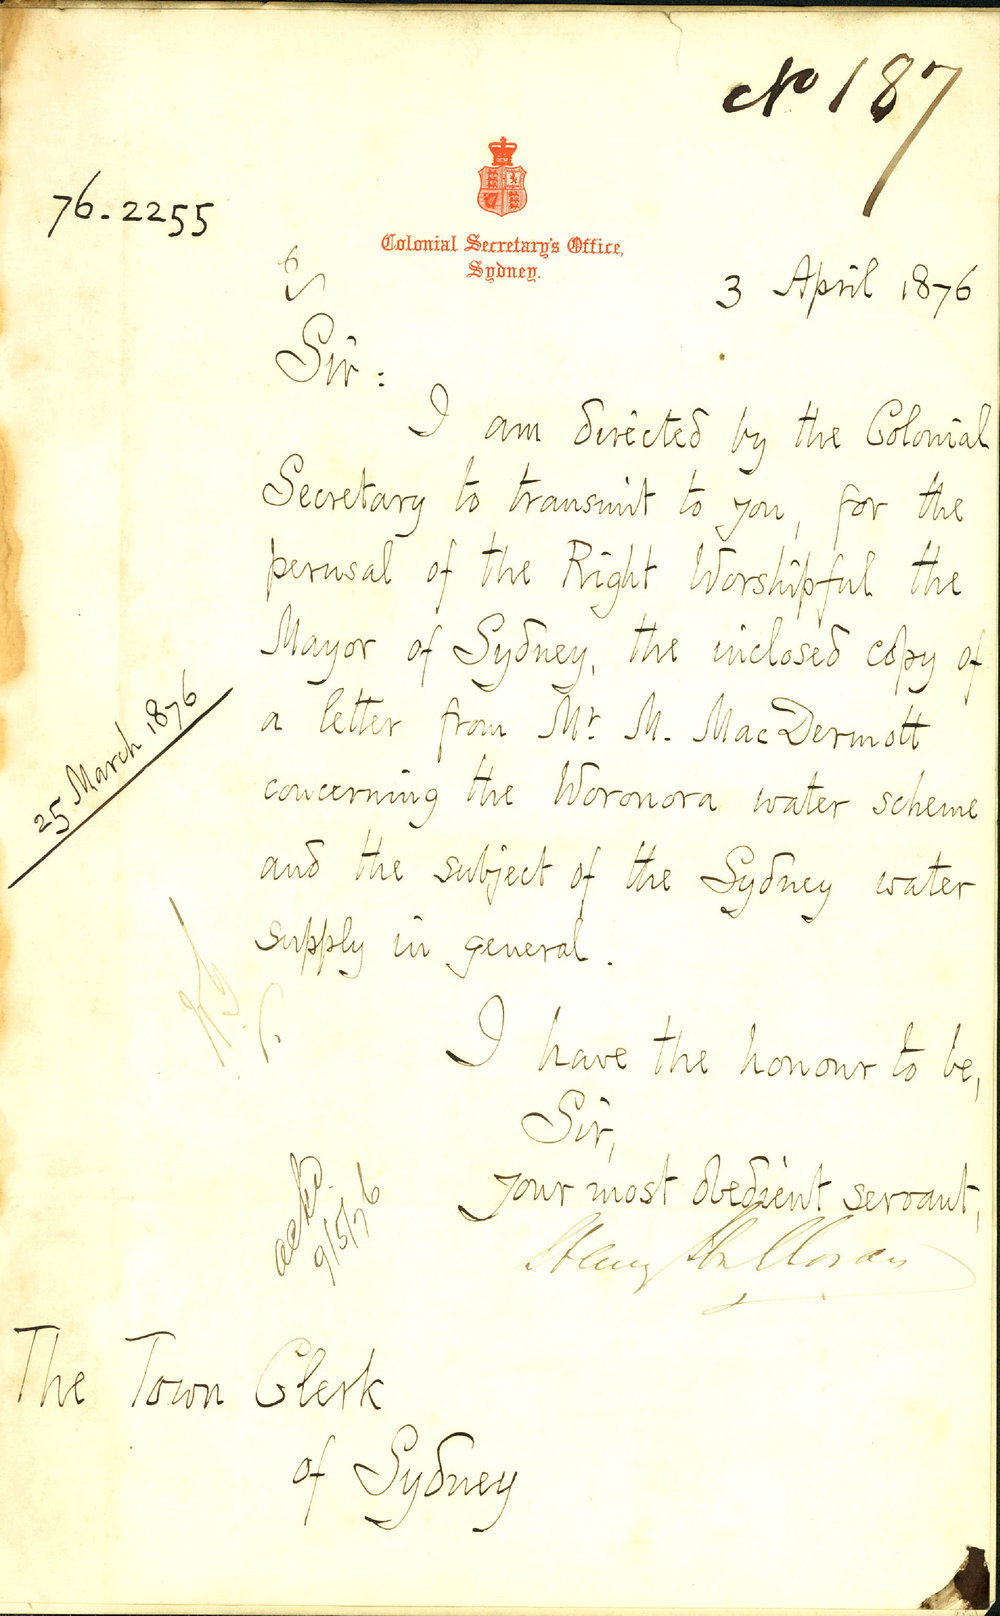 No 187
76.2255
Colonial Secretary's Office,
Sydney.
3 April 1876
Sir:
I am directed by the Colonial
Secretary to transmit to you, for the
perusal of the Right Worshipful the
Mayor of Sydney, the inclosed copy of
a letter from Mr. M. MacDermott
25 March 1876
concerning the Woronora water scheme
and the subject of the Sydney water
supply in general.
I have the honour to be,
Sir,
your most obedient servant,
Henry Halloran
ackd.
9/5/76
The Town Clerk
of Sydney